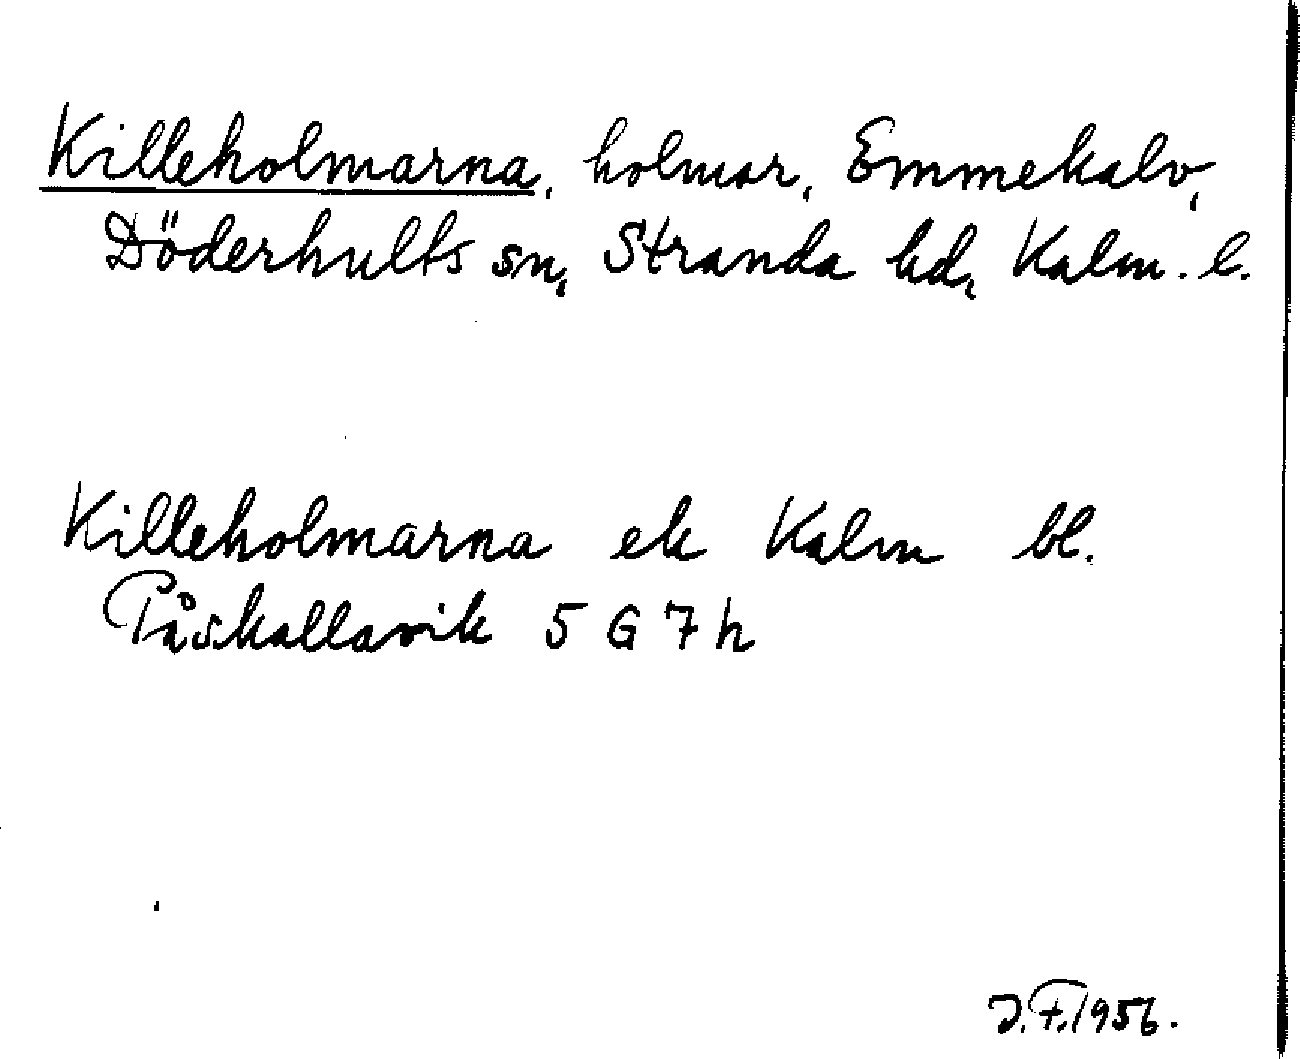 Killeholmarna, holmar, Emmekalv,
Döderhults sn, Stranda hd, Kalm. l.
Killeholmarna ek Kalm bl.
Påskallavik 5 G 7 h
J.F. 1956.